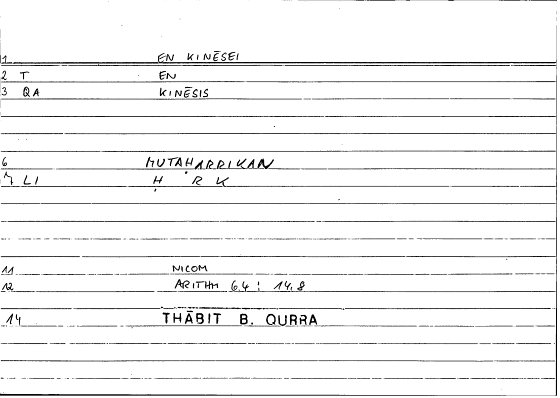 1 EN KINĒSEI
2 T EN
3 QA KINĒSIS
6 MUTAḤARRIKAN
7 LI Ḥ R K
11 NICOM
12 ARITHM 6.4 : 14.8
14 THĀBIT B. QURRA